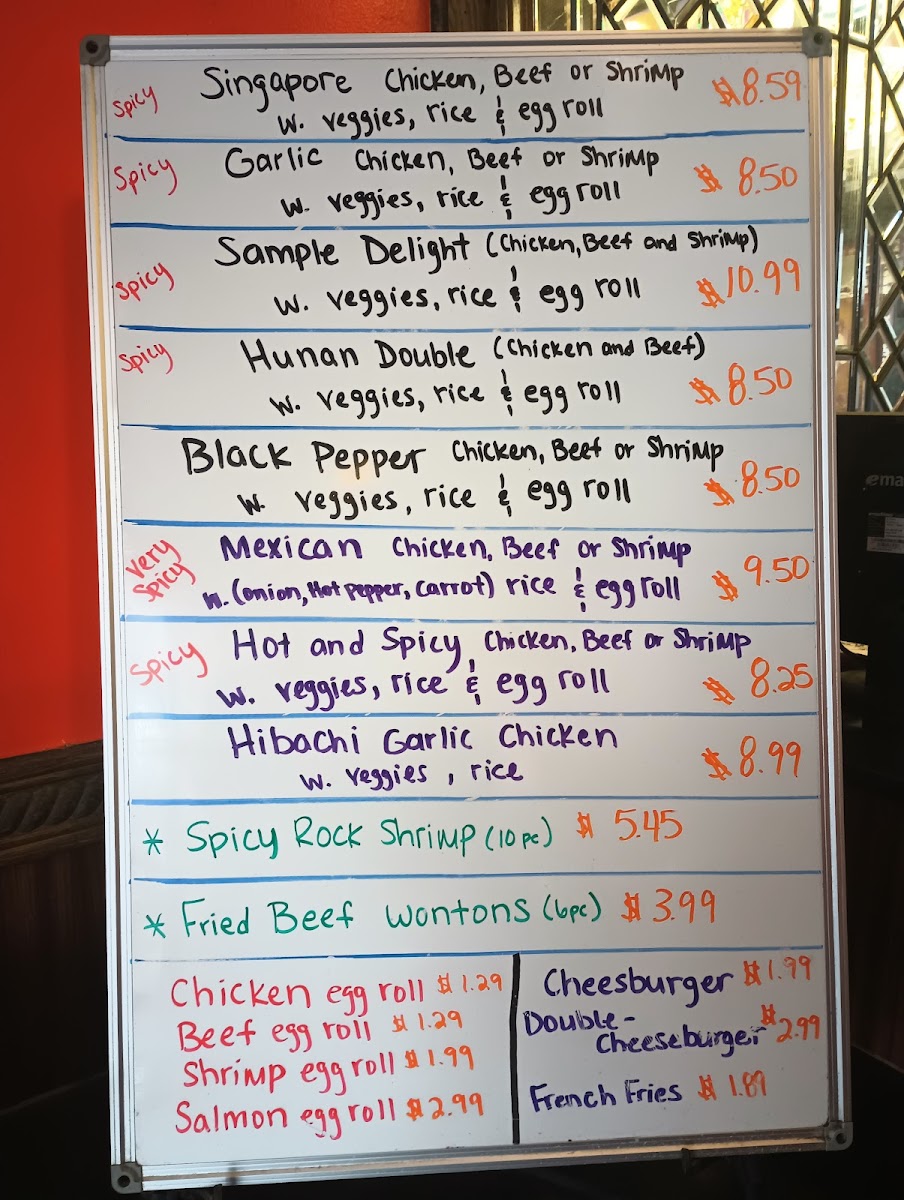 Spicy Singapore Chicken, Beef or Shrimp $8.59
w. veggies, rice & egg roll
Spicy Garlic Chicken, Beef or Shrimp $8.50
w. veggies, rice & egg roll
Spicy Sample Delight (Chicken, Beef and Shrimp) $10.99
w. veggies, rice & egg roll
Spicy Hunan Double (Chicken and Beef) $8.50
w. veggies, rice & egg roll
Black Pepper Chicken, Beef or Shrimp $8.50
w. veggies, rice & egg roll
Very Spicy Mexican Chicken, Beef or Shrimp $9.50
w. (onion, Hot pepper, Carrot) rice & egg roll
Spicy Hot and Spicy, Chicken, Beef or Shrimp $8.25
w. veggies, rice & egg roll
Hibachi Garlic Chicken $8.99
w. veggies, rice
* Spicy Rock Shrimp (10 pc) $5.45
* Fried Beef wontons (6pc) $3.99
Chicken egg roll $1.29
Beef egg roll $1.29
Shrimp egg roll $1.99
Salmon egg roll $2.99
Cheesburger $1.99
Double-
Cheeseburger $2.99
French Fries $1.89
ema